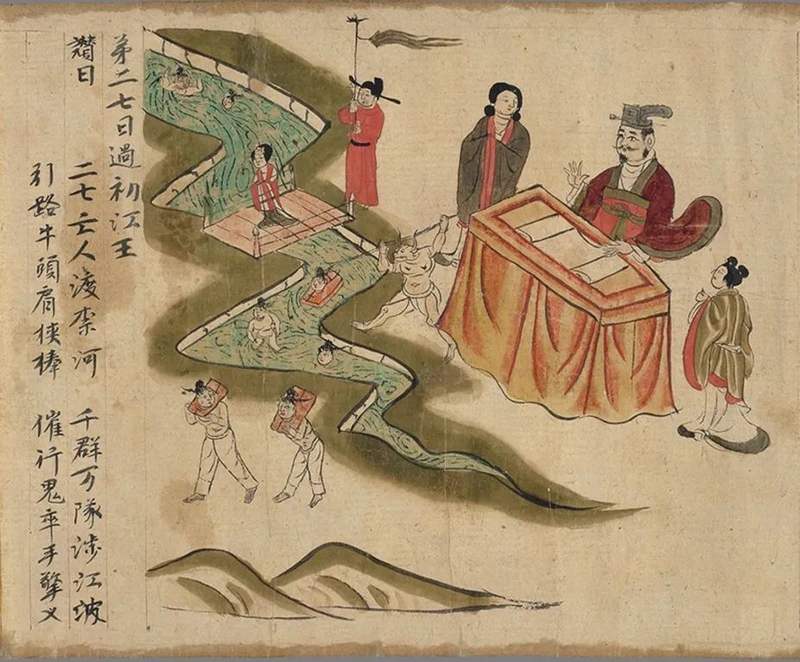 弟二七日過初江王
讚曰 二七亡人渡柰河 千群万隊涉江波
引路牛頭肩挾棒 催行鬼卒手擎叉